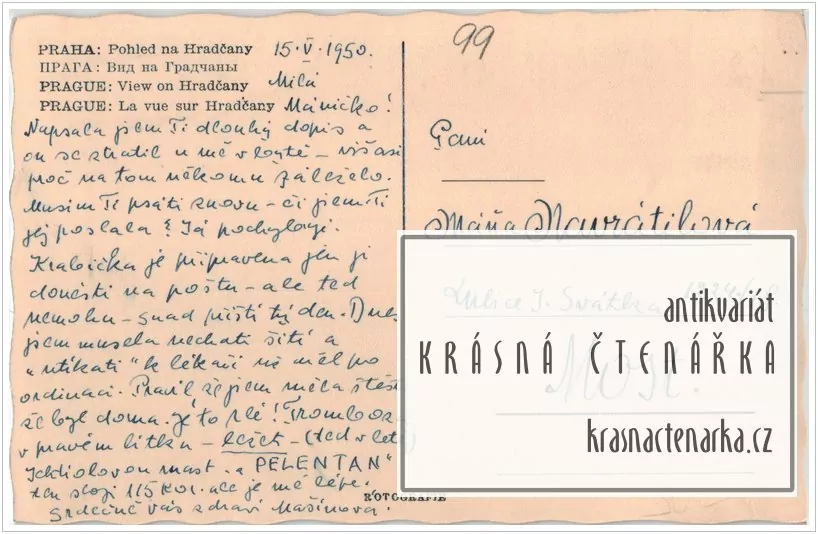 PRAHA: Pohled na Hradčany 15.V.1950.
ПРАГА: Вид на Градчаны
PRAGUE: View on Hradčany Milá
PRAGUE: La vue sur Hradčany Máničko!
Napsala jsem Ti dlouhý dopis a
on se ztratil u mě v bytě –
proč na tom někomu záleželo.
Musím Ti psáti znovu – či jsem Ti
jej poslala? Já pochybuji.
Krabička je připravena jen ji
donésti na poštu – ale teď
nemohu – snad příští týden. Dnes
jsem musela nechati šití a
„utíkati“ k lékaři než měl po
ordinaci. Pravil, že jsem měla štěstí
že byl doma. Je to zlé! Trombosa
v pravém lítku – ležet – (teď v létě
Ichtiolovou mast. a „PELENTAN“
ten stojí 115 Kčs. ale je mě lépe.
Srdečně vás zdraví Mašínova.
99
Paní
Máňa Navrátilová
Ludice J. Svátka
MOST.
ROTOGRAFIE
antikvariát
KRÁSNÁ ČTENÁŘKA
krasnactenarka.cz